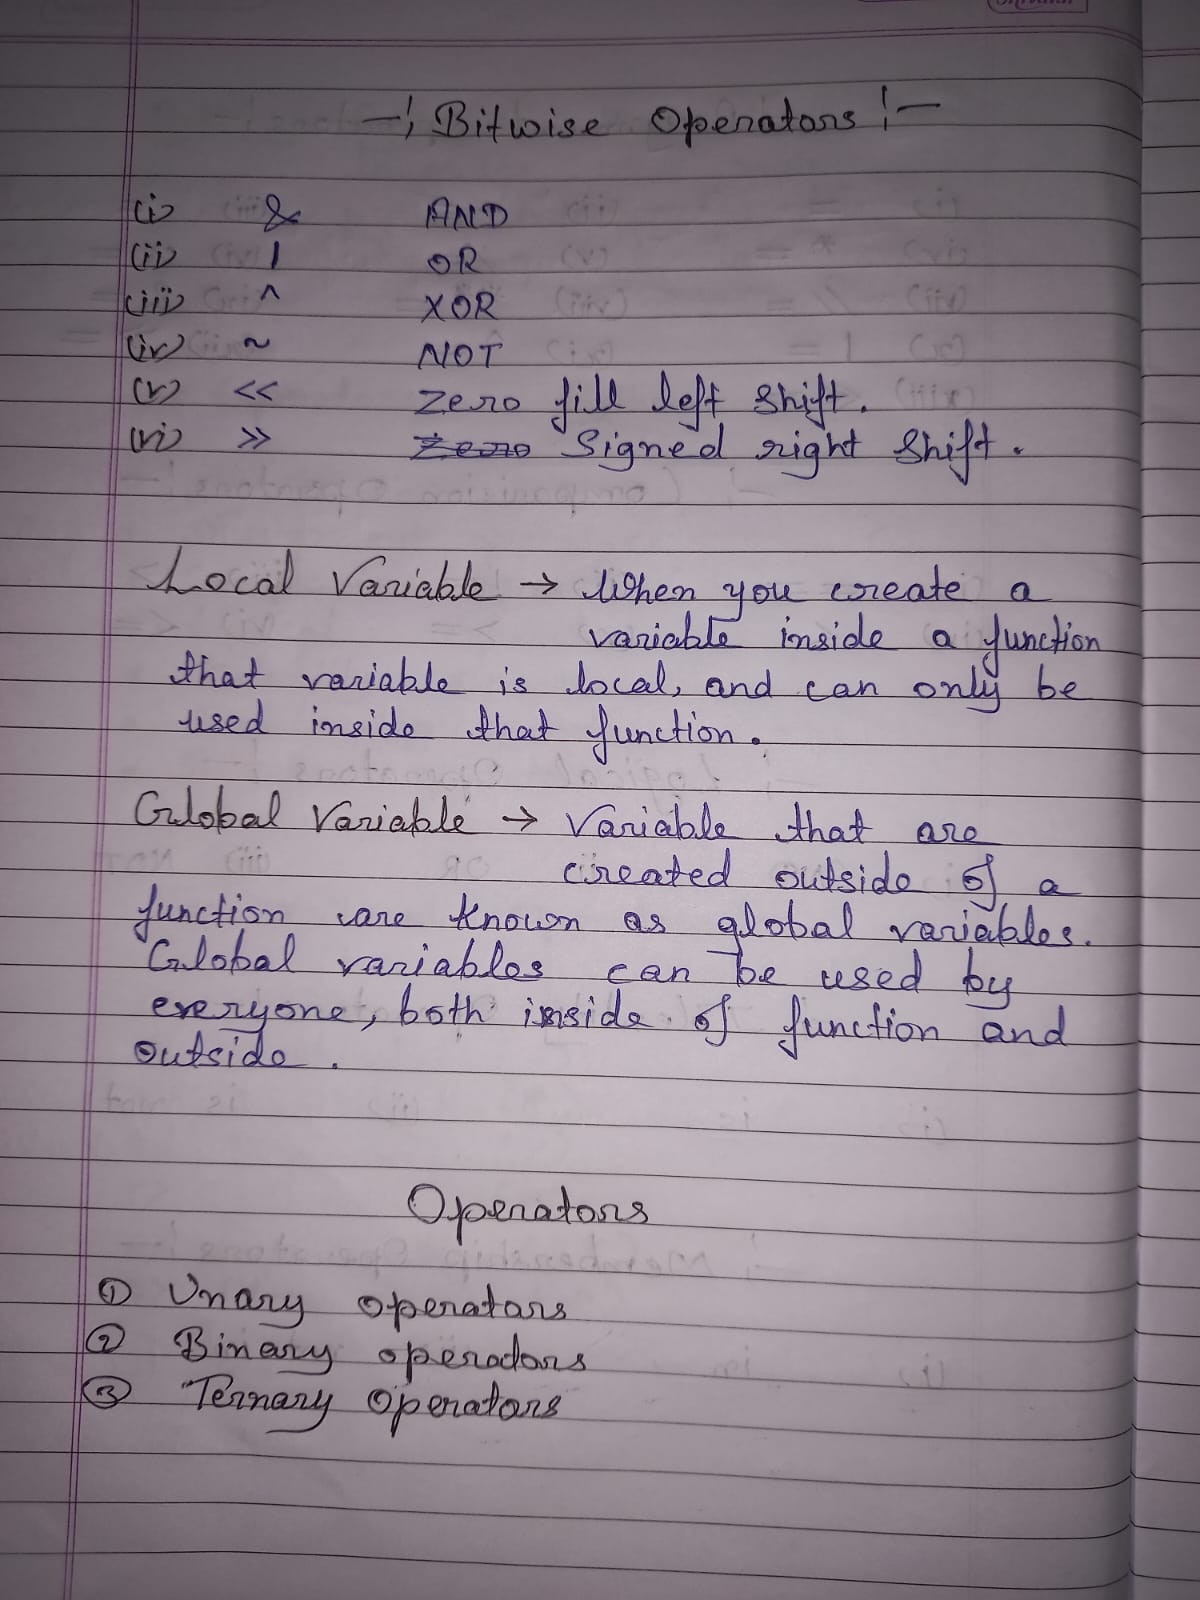 -: Bitwise Operators :-
(i) & AND
(ii) | OR
(iii) ^ XOR
(iv) ~ NOT
(v) << Zero fill left shift.
(vi) >> Zero Signed right shift.
Local Variable → When you create a
variable inside a function
that variable is local, and can only be
used inside that function.
Global Variable → Variable that are
created outside of a
function are known as global variables.
Global variables can be used by
everyone, both inside of function and
outside.
Operators
① Unary operators
② Binary operators
③ Ternary operators